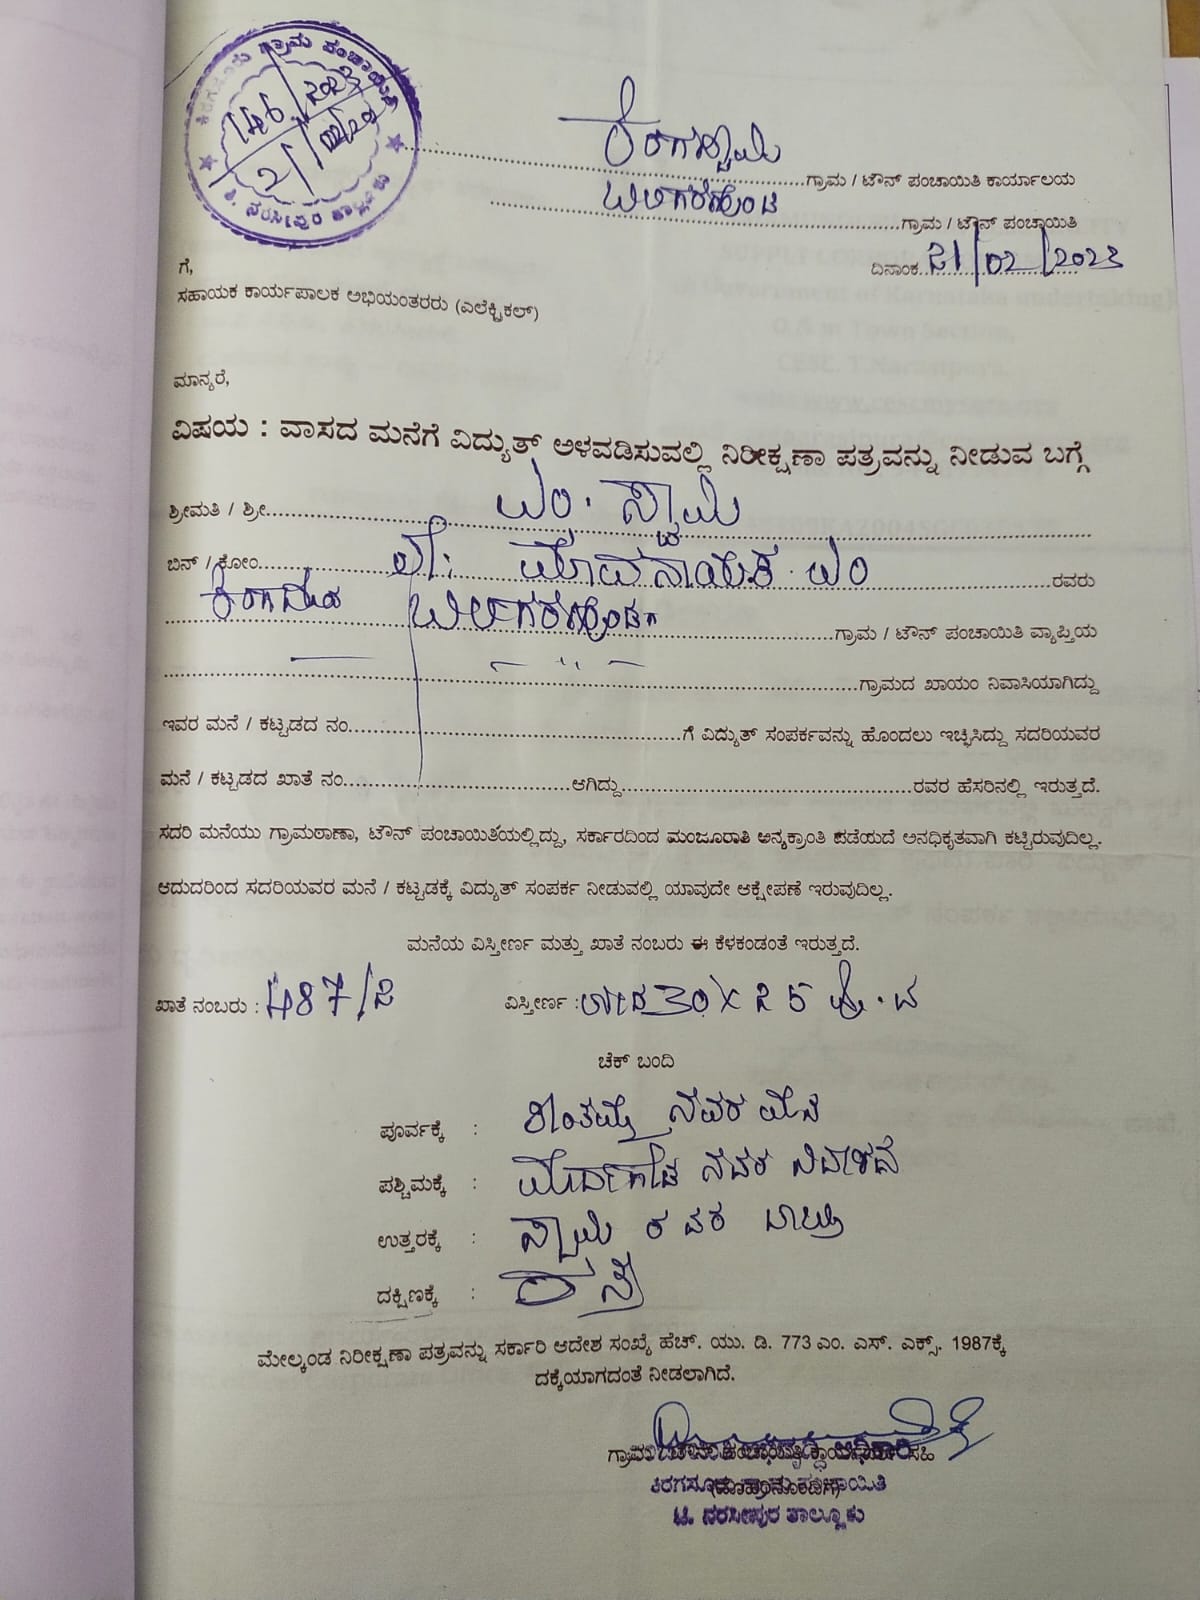 ಗ್ರಾಮ ಪಂಚಾಯಿತಿ
146/2023
21/02/20
ಟಿ. ನರಸೀಪುರ ತಾಲ್ಲೂಕು
ಗ್ರಾಮ / ಟೌನ್ ಪಂಚಾಯಿತಿ ಕಾರ್ಯಾಲಯ
ಗ್ರಾಮ / ಟೌನ್ ಪಂಚಾಯಿತಿ
ದಿನಾಂಕ 21/02/2023
ಗೆ,
ಸಹಾಯಕ ಕಾರ್ಯಪಾಲಕ ಅಭಿಯಂತರರು (ಎಲೆಕ್ಟ್ರಿಕಲ್)
ಮಾನ್ಯರೆ,
ವಿಷಯ : ವಾಸದ ಮನೆಗೆ ವಿದ್ಯುತ್ ಅಳವಡಿಸುವಲ್ಲಿ ನಿರೀಕ್ಷಣಾ ಪತ್ರವನ್ನು ನೀಡುವ ಬಗ್ಗೆ
ಶ್ರೀಮತಿ / ಶ್ರೀ ಎಂ. ಸ್ವಾಮಿ
ಬಿನ್ / ಕೋಂ ಲೇ: ಮಾದನಾಯಕ ಎಂ ರವರು
ಗ್ರಾಮ / ಟೌನ್ ಪಂಚಾಯಿತಿ ವ್ಯಾಪ್ತಿಯ
ಗ್ರಾಮದ ಖಾಯಂ ನಿವಾಸಿಯಾಗಿದ್ದು
ಇವರ ಮನೆ / ಕಟ್ಟಡದ ನಂ ಗೆ ವಿದ್ಯುತ್ ಸಂಪರ್ಕವನ್ನು ಹೊಂದಲು ಇಚ್ಛಿಸಿದ್ದು ಸದರಿಯವರ
ಮನೆ / ಕಟ್ಟಡದ ಖಾತೆ ನಂ ಆಗಿದ್ದು ರವರ ಹೆಸರಿನಲ್ಲಿ ಇರುತ್ತದೆ.
ಸದರಿ ಮನೆಯು ಗ್ರಾಮಠಾಣಾ, ಟೌನ್ ಪಂಚಾಯಿತಿಯಲ್ಲಿದ್ದು, ಸರ್ಕಾರದಿಂದ ಮಂಜೂರಾತಿ ಅನ್ಯಕ್ರಾಂತಿ ಪಡೆಯದೆ ಅನಧಿಕೃತವಾಗಿ ಕಟ್ಟಿರುವುದಿಲ್ಲ.
ಆದುದರಿಂದ ಸದರಿಯವರ ಮನೆ / ಕಟ್ಟಡಕ್ಕೆ ವಿದ್ಯುತ್ ಸಂಪರ್ಕ ನೀಡುವಲ್ಲಿ ಯಾವುದೇ ಆಕ್ಷೇಪಣೆ ಇರುವುದಿಲ್ಲ.
ಮನೆಯ ವಿಸ್ತೀರ್ಣ ಮತ್ತು ಖಾತೆ ನಂಬರು ಈ ಕೆಳಕಂಡಂತೆ ಇರುತ್ತದೆ.
ಖಾತೆ ನಂಬರು : 487/2 ವಿಸ್ತೀರ್ಣ : 30 X 25
ಚೆಕ್ ಬಂದಿ
ಪೂರ್ವಕ್ಕೆ : ನವರ ಮನೆ
ಪಶ್ಚಿಮಕ್ಕೆ : ನವರ ನಿವೇಶನ
ಉತ್ತರಕ್ಕೆ : ಸ್ವಾಮಿ ರವರ
ದಕ್ಷಿಣಕ್ಕೆ : ರಸ್ತೆ
ಮೇಲ್ಕಂಡ ನಿರೀಕ್ಷಣಾ ಪತ್ರವನ್ನು ಸರ್ಕಾರಿ ಆದೇಶ ಸಂಖ್ಯೆ ಹೆಚ್. ಯು. ಡಿ. 773 ಎಂ. ಎಸ್. ಎಕ್ಸ್. 1987ಕ್ಕೆ
ದಕ್ಕೆಯಾಗದಂತೆ ನೀಡಲಾಗಿದೆ.
ಟಿ. ನರಸೀಪುರ ತಾಲ್ಲೂಕು